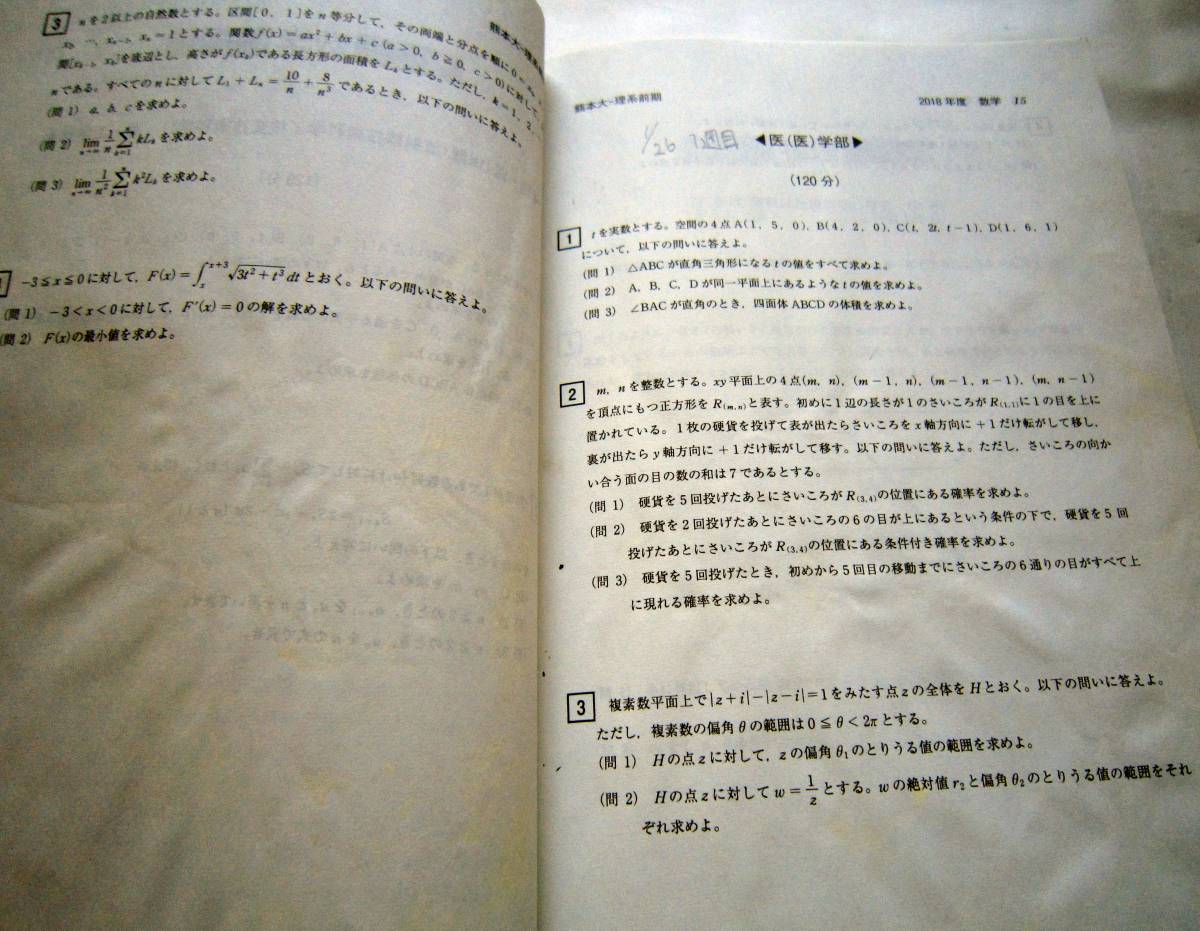 熊本大-理系
3 nを2以上の自然数とする。区間[0, 1]をn等分して,その両端と分点を順に0=
x₀, …, xₙ₋₁, xₙ=1とする。関数f(x)=ax²+bx+c (a>0, b≧0, c>0)に対して,
間[xₖ₋₁, xₖ]を底辺とし,高さがf(xₖ)である長方形の面積をLₖとする。ただし,k=1, 2, …,
nである。すべてのnに対してL₁+Lₙ=10/n+8/n³であるとき,以下の問いに答えよ。
(問 1) a, b, cを求めよ。
(問 2) lim n→∞ 1/n Σ k=1 n kLₖを求めよ。
(問 3) lim n→∞ 1/n² Σ k=1 n k²Lₖを求めよ。
-3≦x≦0に対して,F(x)=∫ₓˣ⁺³√(3t²+t³)dtとおく。以下の問いに答えよ。
(問 1) -3<x<0に対して,F′(x)=0の解を求めよ。
(問 2) F(x)の最小値を求めよ。
熊本大-理系前期
2018年度 数学 15
1/26 1週目
◀医(医)学部▶
(120分)
1 tを実数とする。空間の4点A(1, 5, 0), B(4, 2, 0), C(t, 2t, t-1), D(1, 6, 1)
について,以下の問いに答えよ。
(問 1) △ABCが直角三角形になるtの値をすべて求めよ。
(問 2) A, B, C, Dが同一平面上にあるようなtの値を求めよ。
(問 3) ∠BACが直角のとき,四面体ABCDの体積を求めよ。
2 m, nを整数とする。xy平面上の4点(m, n), (m-1, n), (m-1, n-1), (m, n-1)
を頂点にもつ正方形をR₍ₘ,ₙ₎と表す。初めに1辺の長さが1のさいころがR₍₁,₁₎に1の目を上に
置かれている。1枚の硬貨を投げて表が出たらさいころをx軸方向に+1だけ転がして移し,
裏が出たらy軸方向に+1だけ転がして移す。以下の問いに答えよ。ただし,さいころの向か
い合う面の目の数の和は7であるとする。
(問 1) 硬貨を5回投げたあとにさいころがR₍₃,₄₎の位置にある確率を求めよ。
(問 2) 硬貨を2回投げたあとにさいころの6の目が上にあるという条件の下で,硬貨を5回
投げたあとにさいころがR₍₃,₄₎の位置にある条件付き確率を求めよ。
(問 3) 硬貨を5回投げたとき,初めから5回目の移動までにさいころの6通りの目がすべて上
に現れる確率を求めよ。
3 複素数平面上で|z+i|-|z-i|=1をみたす点zの全体をHとおく。以下の問いに答えよ。
ただし,複素数の偏角θの範囲は0≦θ<2πとする。
(問 1) Hの点zに対して,zの偏角θ₁のとりうる値の範囲を求めよ。
(問 2) Hの点zに対してw=1/zとする。wの絶対値r₂と偏角θ₂のとりうる値の範囲をそれ
ぞれ求めよ。